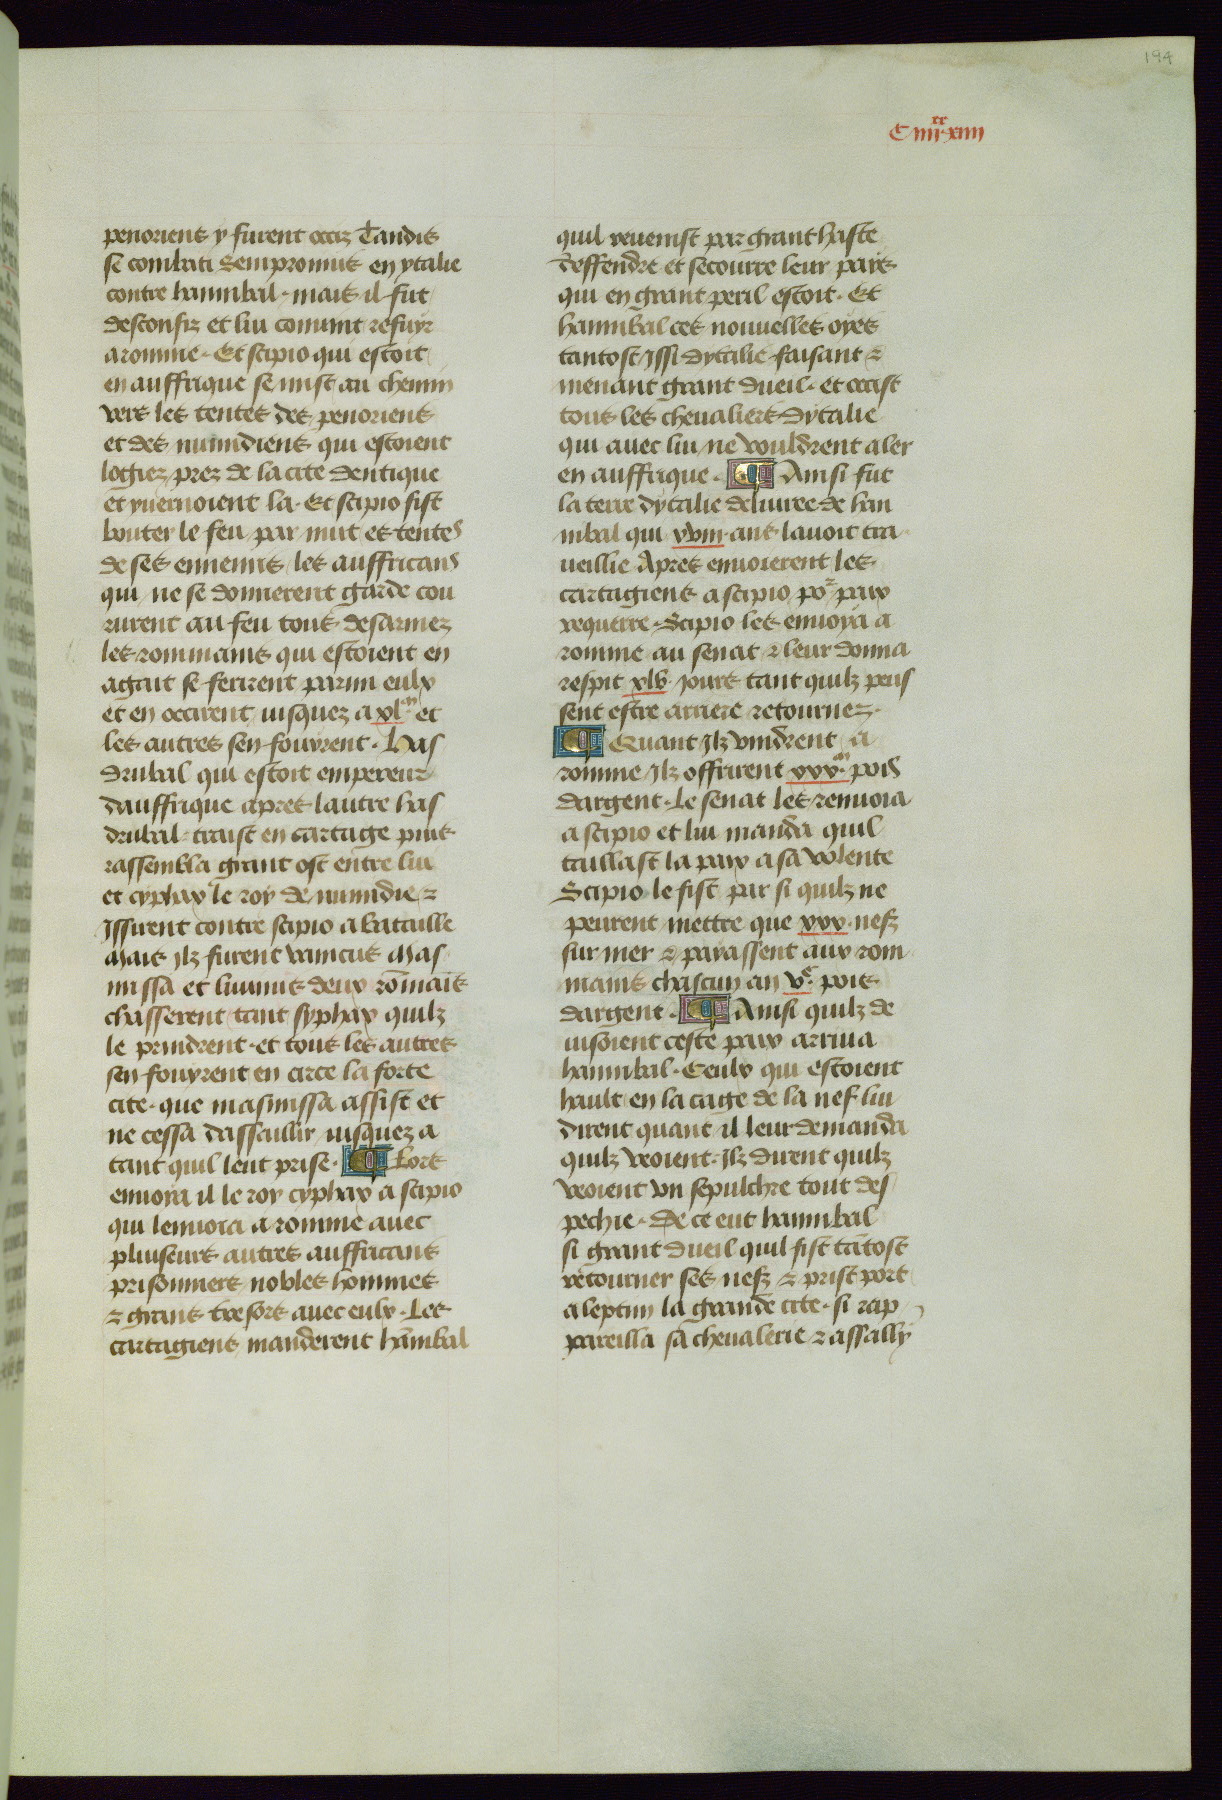 194
C iiii xx xiiii
penoriens y furent occiz Tandis
se combati Sempronius en ytalie
contre hannibal · mais il fut
desconfiz et lui conuint refuyr
a romme · Et scipio qui estoit
en auffrique se mist au chemin
vers les tentes des penoriens
et des numidiens qui estoient
logiez prez de la cite dentique
et yuernoient la · Et scipio fist
bouter le feu par nuit es tentes
de ses ennemis les auffricans
qui ne se donnerent garde cou
rurent au feu tous desarmez
les rommains qui estoient en
agait se ferirent parmi eulx
et en occirent iusquez a xl m et
les autres sen fouyrent · Has
drubal qui estoit empereur
dauffrique apres lautre has
drubal traist en cartage puis
rassembla grant ost entre lui
et cyphax le roy de numidie ⁊
Jssirent contre scipio a bataille
Mais Jlz furent vaincus Mas
nissa et liuinus deux rōmais
chasserent tant syphax quilz
le prindrent · et tous les autres
sen fouyrent en circe la forte
cite · que masinissa assist et
ne cessa dassaillir iusquez a
tant quil leut prise · ¶ Lors
enuoya il le roy cyphax a scipio
qui lenuoia a romme auec
pluiseurs autres auffricans
prisonniers nobles hommes
⁊ grans tresors auec eulx · Les
cartagiens manderent hānibal
quil reuenist par grant haste
deffendre et secourre leur pais
qui en grant peril estoit · Et
hannibal ces nouuelles oyes
tantost Jssi dytalie faisant ⁊
menant grant dueil · et occist
tous les cheualiers dytalie
qui auec lui ne vouldrent aler
en auffrique · ¶ Ainsi fut
la terre dytalie deliuree de han
nibal qui xviii ans lauoit tra
ueillie Apres enuoierent les
cartagiens a scipio por paix
requerre · Scipio les enuoya a
romme au senat ⁊ leur donna
respit xlv · Jours tant quilz peus
sent estre arriere retournez ·
¶ Quant Jlz vindrent a
romme Jlz offrirent xxx m pois
dargent · Le senat les renuoia
a scipio et lui manda quil
taillast la paix a sa volente
Scipio le fist par si quilz ne
peurent mettre que xxx · nefz
sur mer ⁊ paiassent aux rom
mains chascun an v c pois
dargent · ¶ Ainsi quilz de
uisoient ceste paix arriua
hannibal · Ceulx qui estoient
hault en la cage de la nef lui
dirent quant il leur demanda
quilz veoient · Jlz dirent quilz
veoient vn sepulchre tout des
pechie · De ce eut hannibal
si grant dueil quil fist tātost
retourner ses nefz ⁊ prist port
a leptun la grande cite · si rap
pareilla sa cheualerie ⁊ assally